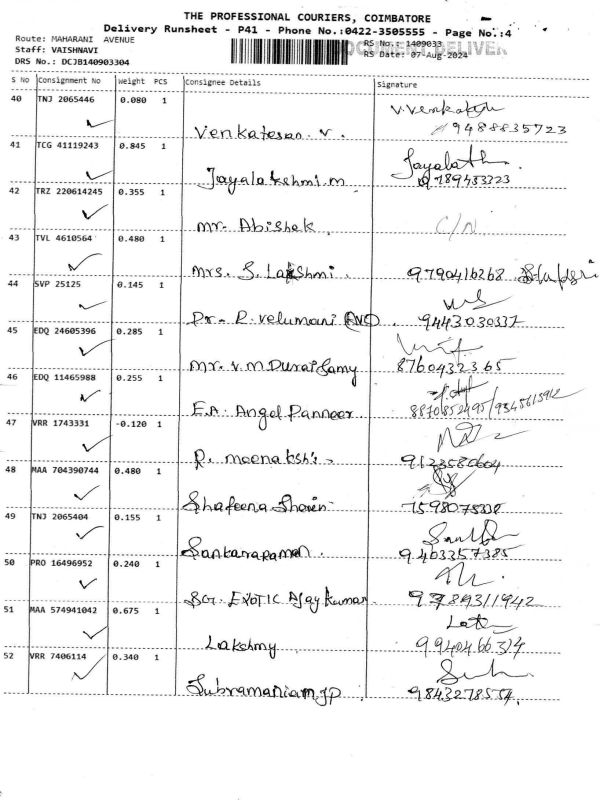 THE PROFESSIONAL COURIERS, COIMBATORE
Delivery Runsheet - P41 - Phone No.:0422-3505555 - Page No.:4
Route: MAHARANI AVENUE
RS No.: 1409033
Staff: VAISHNAVI
RS Date: 07-Aug-2024
DRS No.: DCJB140903304
S No Consignment No Weight PCS Consignee Details Signature
40 TNJ 2065446 0.080 1
Venkatesan. V. 9488835723
41 TCG 41119243 0.845 1
Jayalakshmi.m 9789433323
42 TRZ 220614245 0.355 1
Mr. Abishek C/N
43 TVL 4610564 0.480 1
Mrs. S. Lakshmi. 9790416268
44 SVP 25125 0.145 1
Dr. R. Velumani 9443030337
45 EDQ 24605396 0.285 1
Mr. V.M Duraisamy 8760432365
46 EDQ 11465988 0.255 1
E.A. Angel Panneer 8870852495/9345615912
47 VRR 1743331 -0.120 1
R. meenakshi 9123580604
48 MAA 704390744 0.480 1
Shafeena Sherin
49 TNJ 2065404 0.155 1
Sankararaman. 9403357385
50 PRO 16496952 0.240 1
EXOTIC Ajay kumar 9789311942
51 MAA 574941042 0.675 1
Lakshmy 9940466314
52 VRR 7406114 0.340 1
Subramaniam.JP 9843278554.